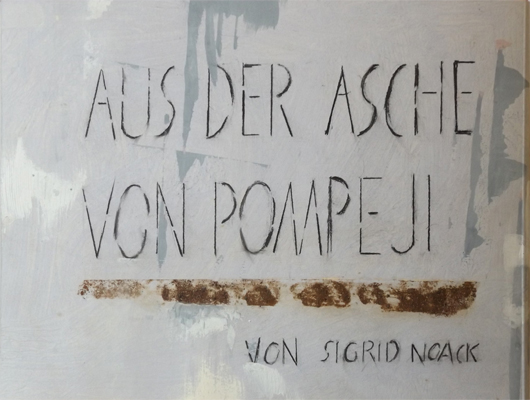 AUS DER ASCHE
VON POMPEJI
VON SIGRID NOACK